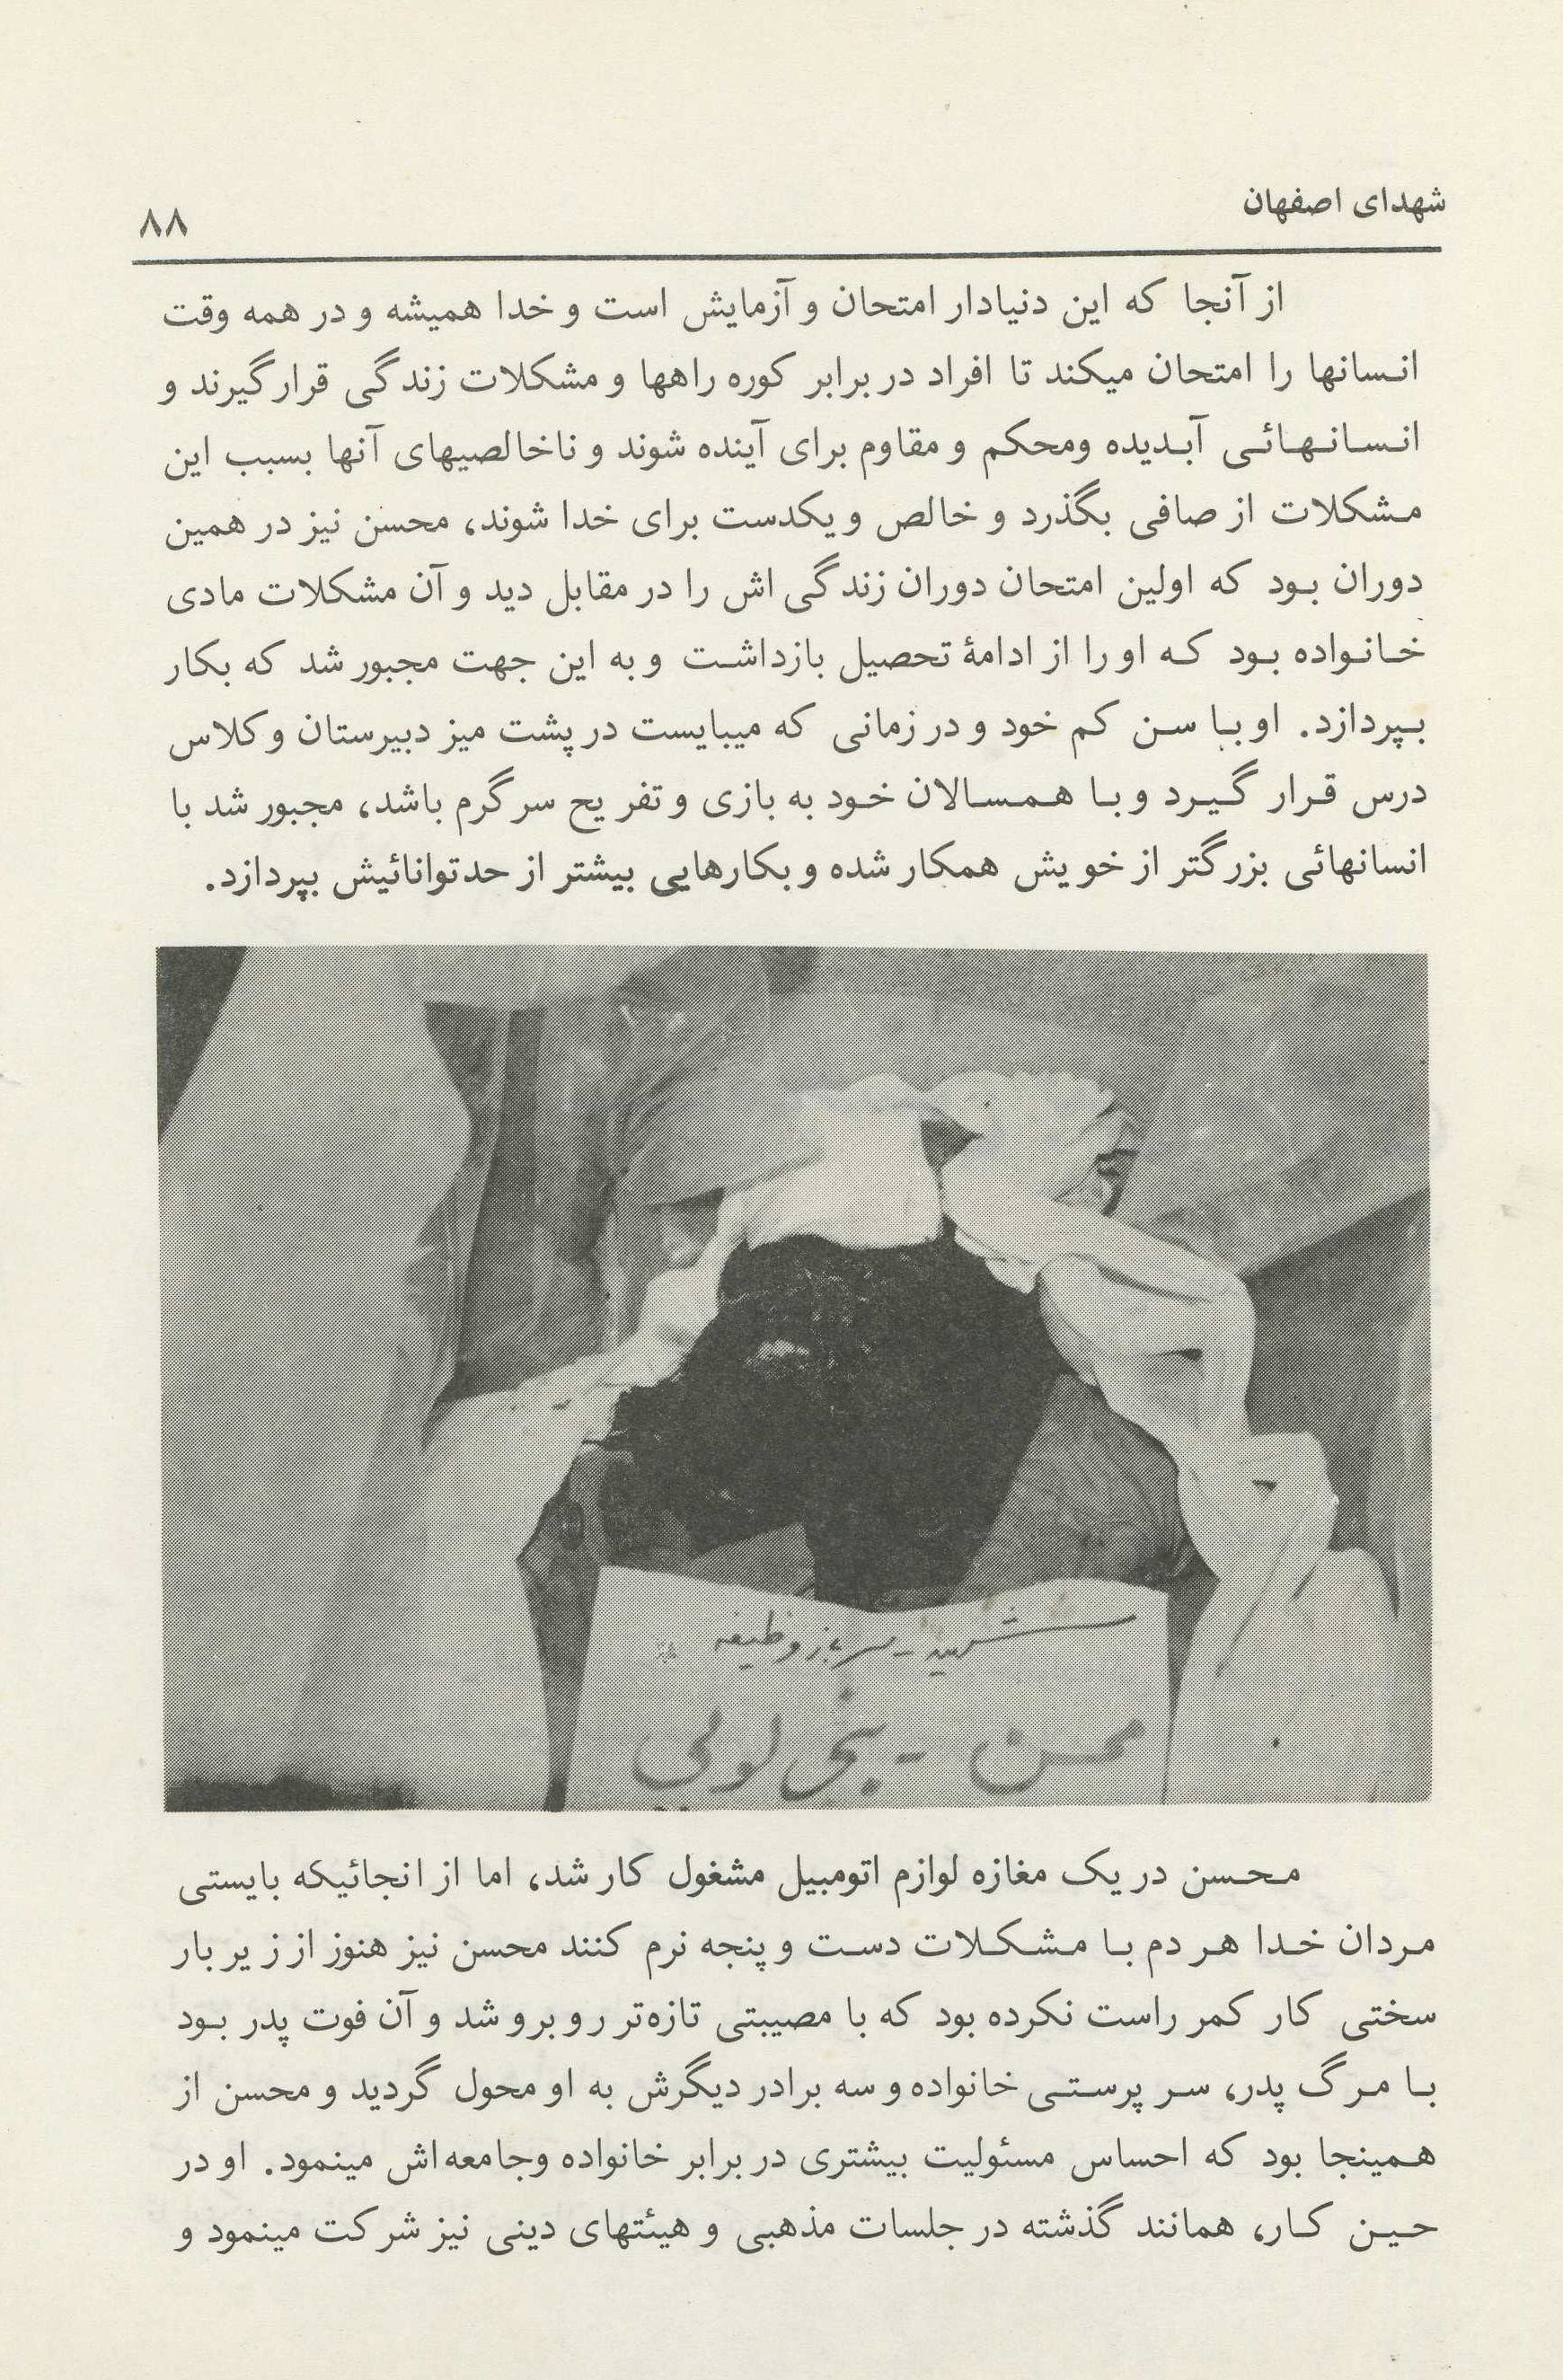 شهدای اصفهان
۸۸
از آنجا که این دنیادار امتحان و آزمایش است و خدا همیشه و در همه وقت
انسانها را امتحان میکند تا افراد در برابر کوره راهها و مشکلات زندگی قرار گیرند و
انسانهائی آبدیده ومحکم و مقاوم برای آینده شوند و ناخالصیهای آنها بسبب این
مشکلات از صافی بگذرد و خالص و یکدست برای خدا شوند، محسن نیز در همین
دوران بود که اولین امتحان دوران زندگی اش را در مقابل دید و آن مشکلات مادی
خانواده بود که او را از ادامهٔ تحصیل بازداشت و به این جهت مجبور شد که بکار
بپردازد. او با سن کم خود و در زمانی که میبایست در پشت میز دبیرستان و کلاس
درس قرار گیرد و با همسالان خود به بازی و تفریح سرگرم باشد، مجبور شد با
انسانهائی بزرگتر از خویش همکار شده و بکارهایی بیشتر از حدتوانائیش بپردازد.
شهید - سرباز وظیفه
محسن -
محسن در یک مغازه لوازم اتومبیل مشغول کار شد، اما از انجائیکه بایستی
مردان خدا هر دم با مشکلات دست و پنجه نرم کنند محسن نیز هنوز از زیر بار
سختی کار کمر راست نکرده بود که با مصیبتی تازه‌تر روبرو شد و آن فوت پدر بود
با مرگ پدر، سر پرستی خانواده و سه برادر دیگرش به او محول گردید و محسن از
همینجا بود که احساس مسئولیت بیشتری در برابر خانواده وجامعه‌اش مینمود. او در
حین کار، همانند گذشته در جلسات مذهبی و هیئتهای دینی نیز شرکت مینمود و